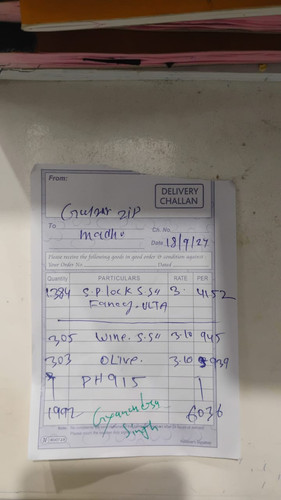 From:
DELIVERY CHALLAN
zip
To
Ch. No.
madhu
Date 18/9/24
Please receive the following goods in good order & condition against
Your Order No. Dated
Quantity PARTICULARS RATE PER
1384 S.P lock S.S4 3. 4152
Fancy-ULTA
305 Wine. S.S4 3.10 945
303 OLive. 3.10 939
PH915
1992 6036
Singh